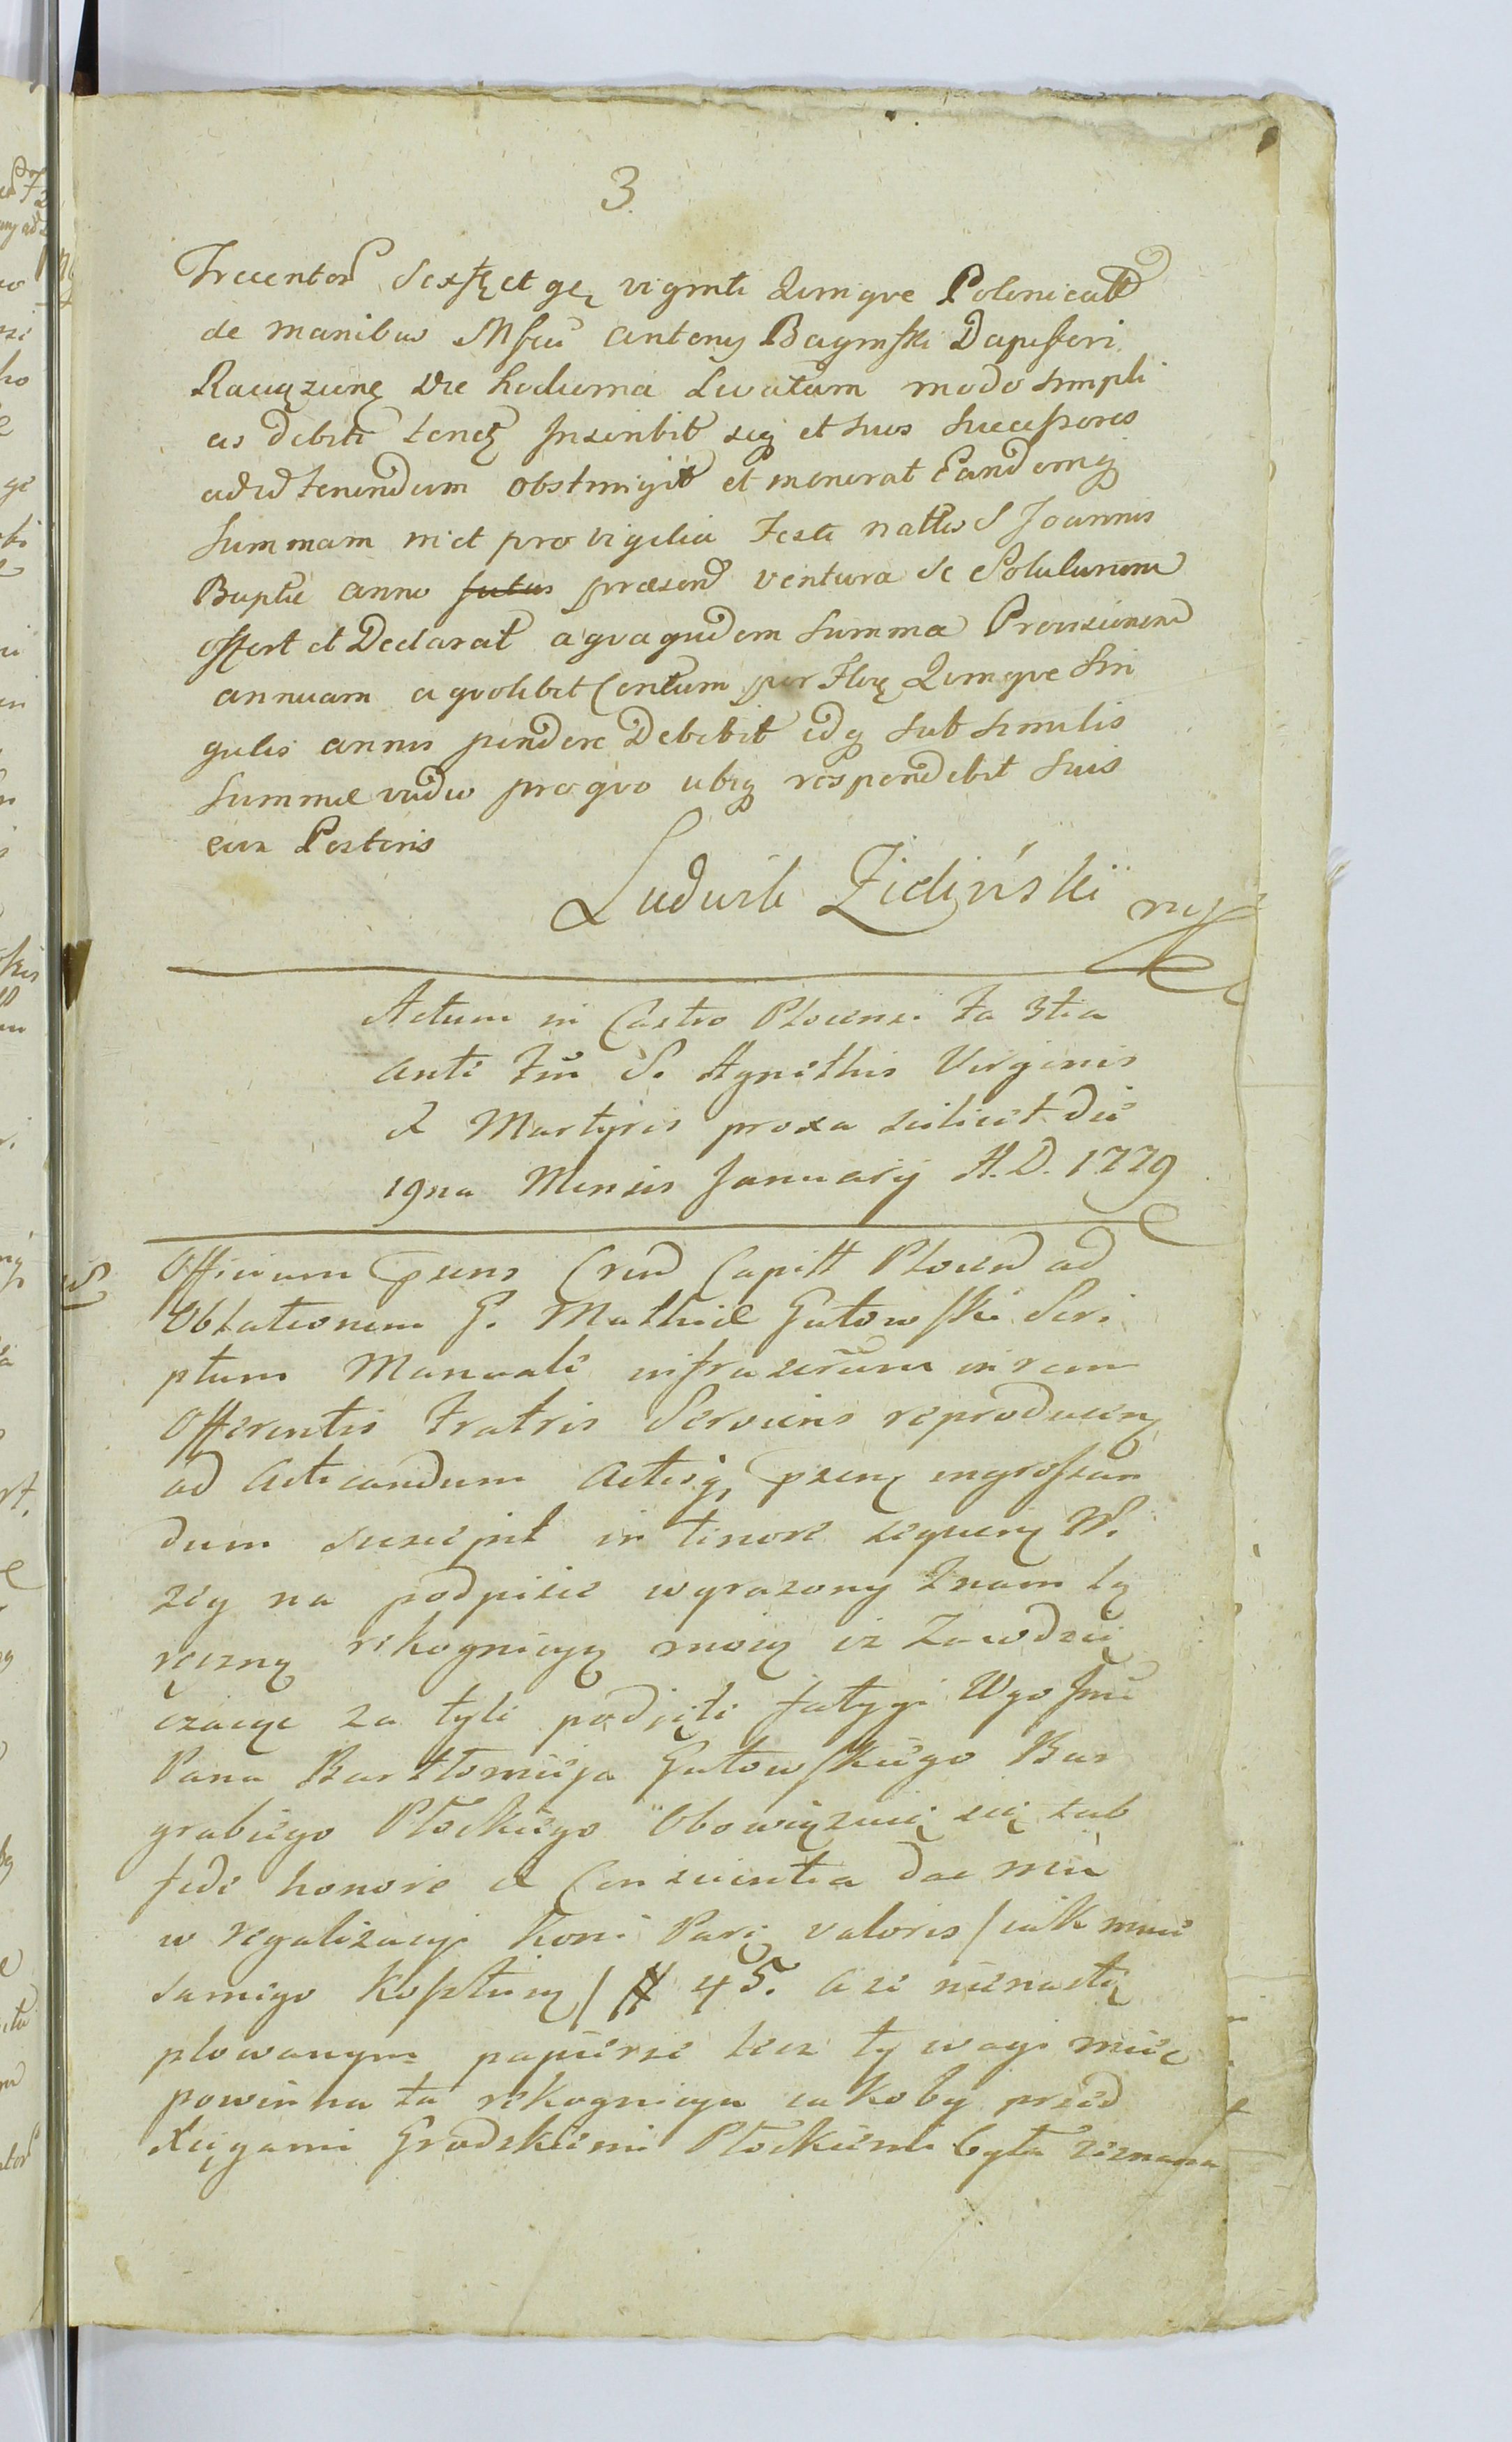 3.
Trecentor Sexq et gę viginti Qunique Polonicalt
de manibus Mfici Antony Baginski Dapiferi
Raciązienę Die hodierna Levatam modo simpli
cis debiti tenetz Inscribit seq et suos Successores
ad id tenendum obstringit et inonerat Eandemq
Summam in et pro vigilia Festi nattis S Joannis
Baptae anno futur præsend ventura se Soluturum
offert et Declarat a qua quidem Summa Provisionem
annuam a quolibet Centum per Florę Quinque Sin
gulis annis pendere Debebit idq sub similis
Summae vadio pro quo ubiq respondebit Suis
cum Posteris
Ludwik Zieliński mp
Actum in Castro Plocensi Fa 3tia
ante Fm S. Agnethis Virginis
et Martyris proxa scilicet die
19na Mensis January A.D. 1779
Officium psens Crend Capitt Plocend ad
Oblationem G. Mathiæ Gutowski Scri
ptum Manuale infrascrum in rem
Offerentis Fratris Serviens reproducenz
ad acticandum Actisq psenz ingrossan
dum suscepit in tenore sequenz N.
żey na podpisie wyrazony Znam tę
ręczną rekognicyą moią iz Zawdzię
czaiąc za tyle podjęte fatygi Wgo Jmci
Pana Bartłomieja Gutowskiego Bur
grabiego Płockiego Obowiązuię się sub
fide honore et Conscientia dac mu
w regalizacyi Koni Parę valoris / iak mnie
samego kosztuią / # 45. a ze nienastę
plowanym papierze lecz ty wagi miec
powinna ta rekognicya iakoby przed
Xięgami Grodzkiemi Płockiemi była zeznana